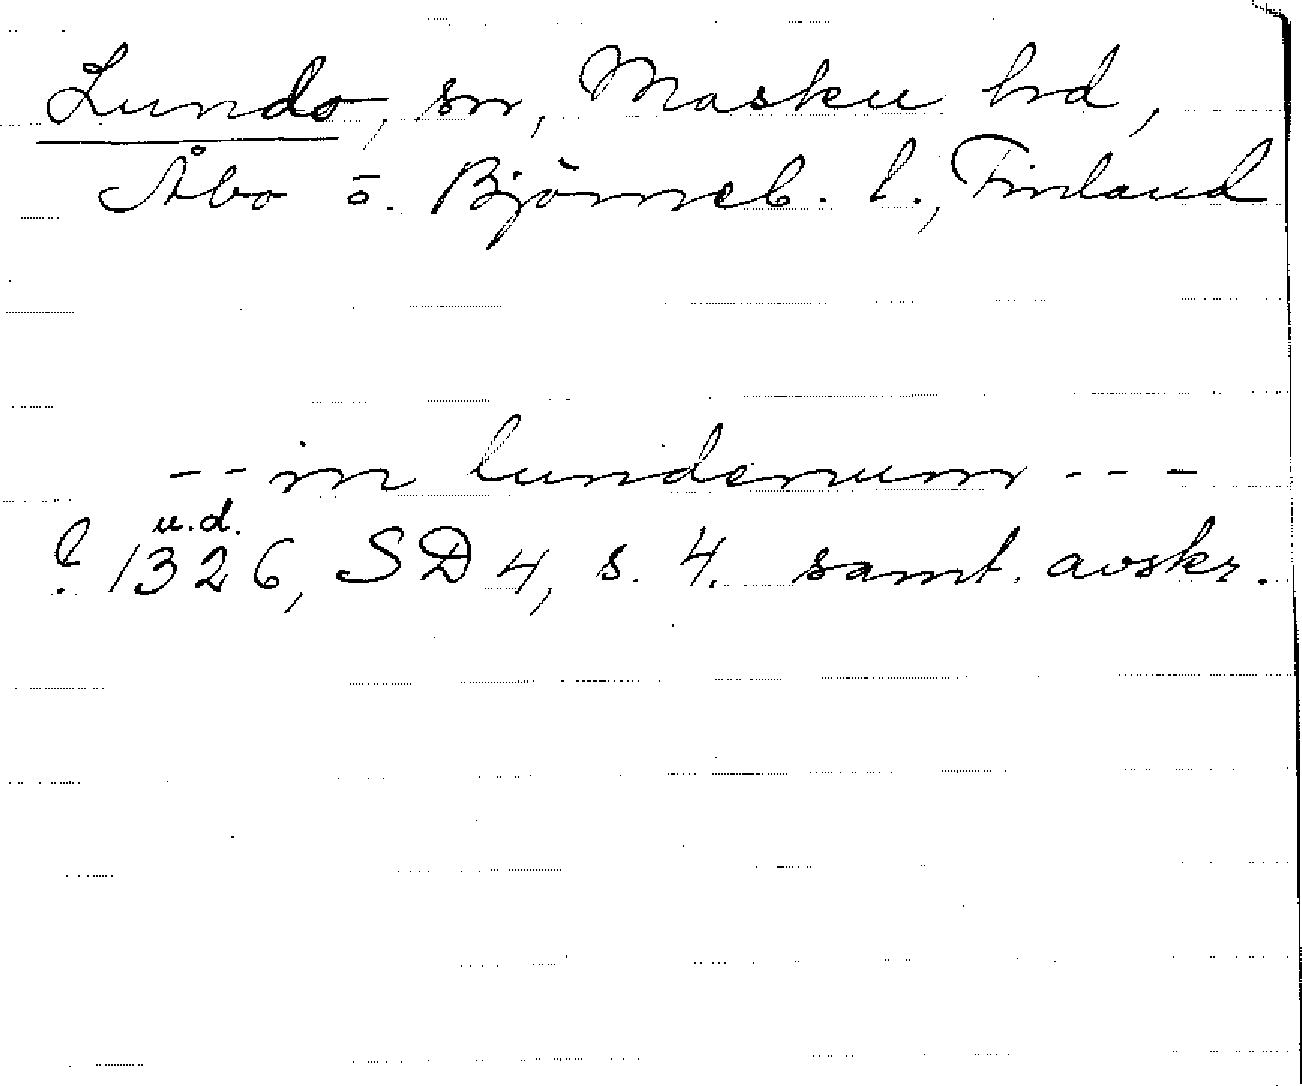 Lundo, sn, Masku hd,
Åbo o. Björneb. l., Finland
-- in lundenum ---
u.d.
? 1326, SD 4, s. 4. samt. avskr.